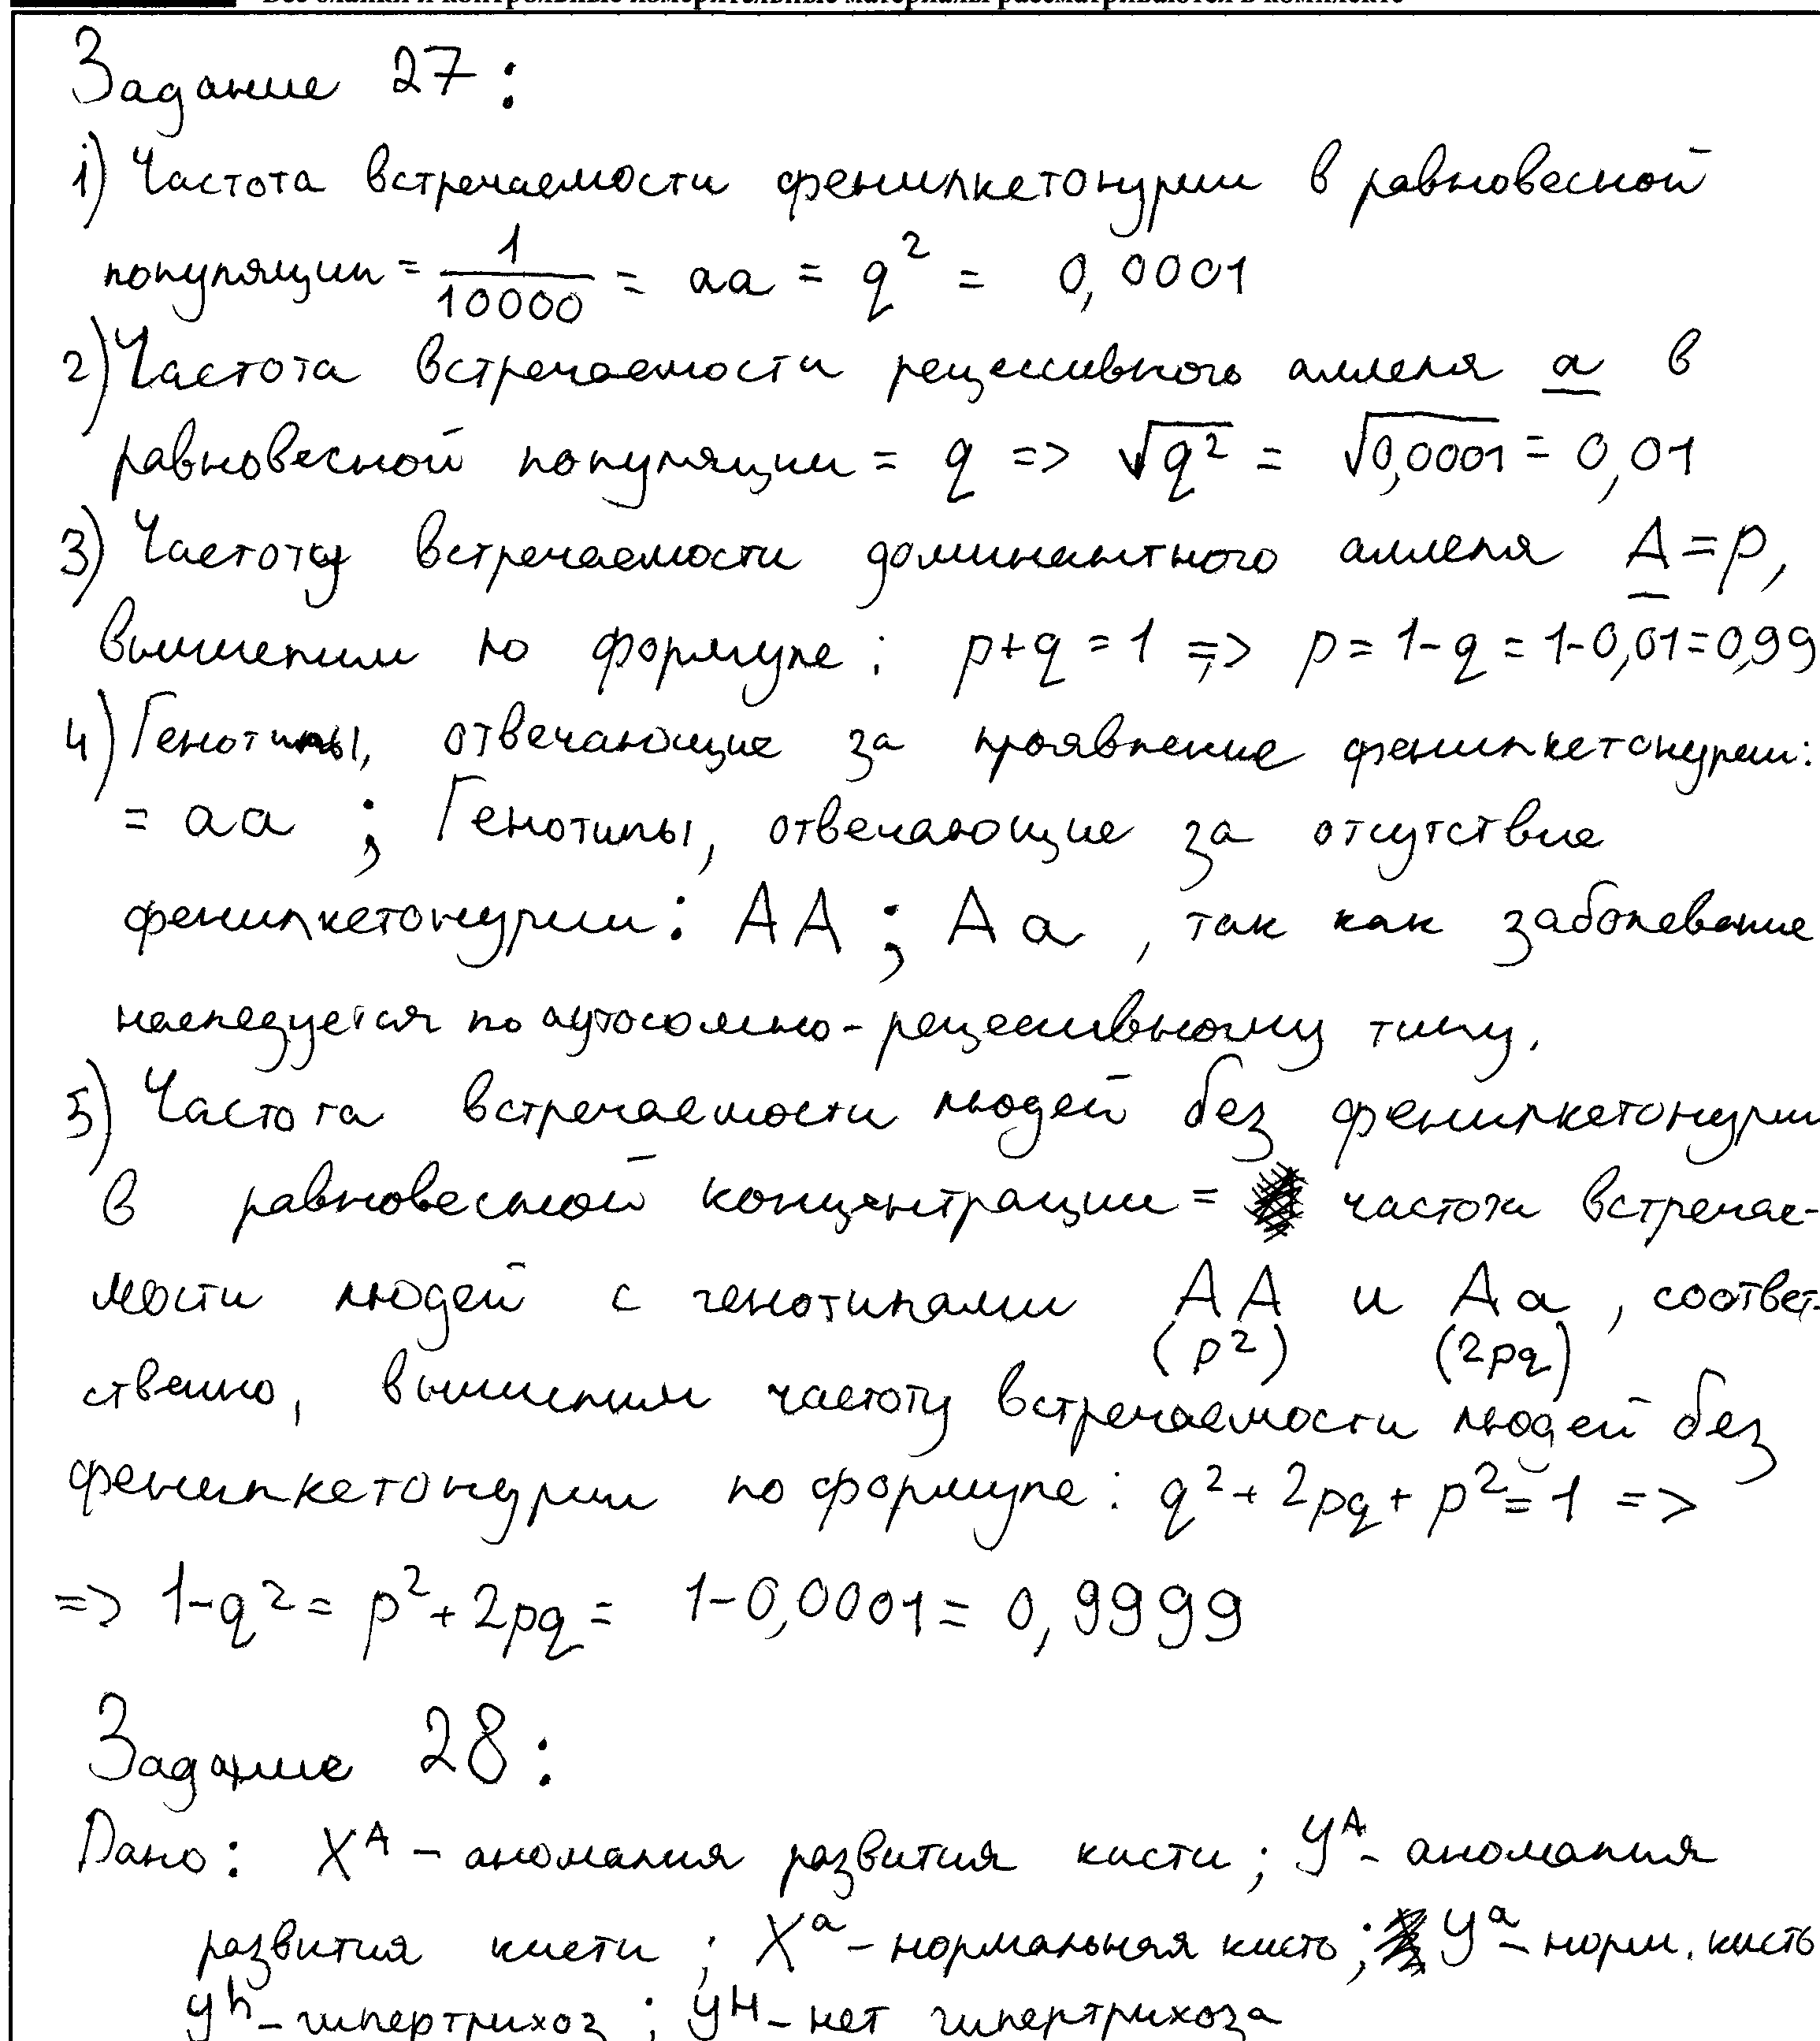 Все бланки и контрольные измерительные материалы рассматриваются в комплекте
Задание 27:
1) Частота встречаемости фенилкетонурии в равновесной
популяции = 1/10000 = aa = q² = 0,0001
2) Частота встречаемости рецессивного аллеля a в
равновесной популяции = q => √q² = √0,0001 = 0,01
3) Частоту встречаемости доминантного аллеля A = p,
вычислим по формуле: p+q = 1 => p = 1-q = 1-0,01=0,99
4) Генотипы, отвечающие за проявление фенилкетонурии:
= aa ; Генотипы, отвечающие за отсутствие
фенилкетонурии: AA ; Aa , так как заболевание
наследуется по аутосомно-рецессивному типу.
5) Частота встречаемости людей без фенилкетонурии
в равновесной концентрации = частота встречае-
мости людей с генотипами AA и Aa , соответ-
(p²) (2pq)
ственно, вычислим частоту встречаемости людей без
фенилкетонурии по формуле: q² + 2pq + p² = 1 =>
=> 1-q² = p² + 2pq = 1-0,0001 = 0,9999
Задание 28:
Дано: Xᴬ – аномалия развития кисти ; Yᴬ – аномалия
развития кисти ; Xᵃ – нормальная кисть ; Yᵃ – норм. кисть
Yʰ – гипертрихоз ; Yᴴ – нет гипертрихоза